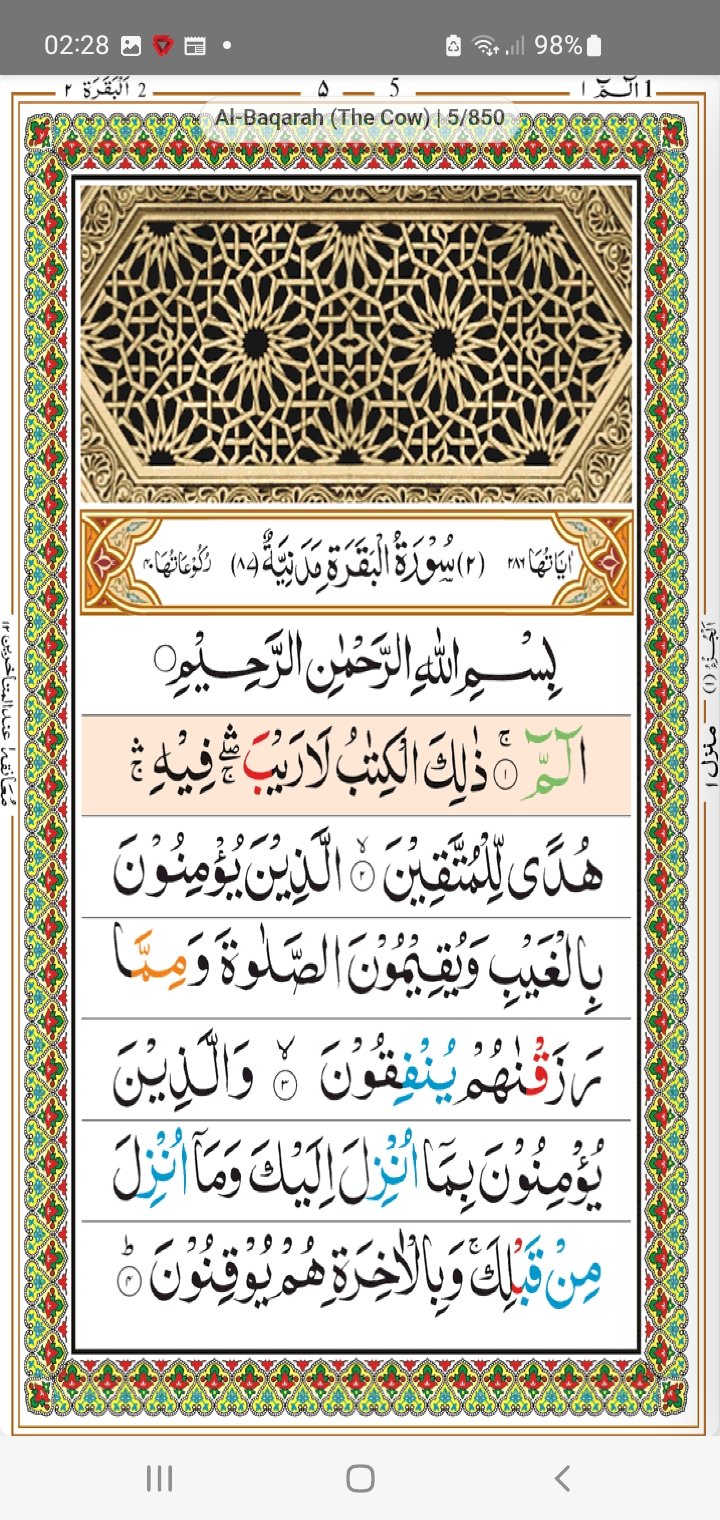 02:28 98%
2 اَلْبَقَرَة ٢ ۵ 5 1 الٓمّٓ ١
Al-Baqarah (The Cow) | 5/850
اٰيَاتُهَا ٢٨٦ (٢) سُوْرَةُ الْبَقَرَةِ مَدَنِيَّةٌ (٨٧) رُكُوْعَاتُهَا ٤٠
بِسْمِ اللّٰهِ الرَّحْمٰنِ الرَّحِيْمِ ○
الٓمّٓ ۚ﴿١﴾ ذٰلِكَ الْكِتٰبُ لَا رَيْبَ ۛۖۚ فِيْهِ ۛۚ
هُدًى لِّلْمُتَّقِيْنَ ۙ﴿٢﴾ الَّذِيْنَ يُؤْمِنُوْنَ
بِالْغَيْبِ وَيُقِيْمُوْنَ الصَّلٰوةَ وَمِمَّا
رَزَقْنٰهُمْ يُنْفِقُوْنَ ۙ﴿٣﴾ وَالَّذِيْنَ
يُؤْمِنُوْنَ بِمَآ اُنْزِلَ اِلَيْكَ وَمَآ اُنْزِلَ
مِنْ قَبْلِكَ ۚ وَبِالْاٰخِرَةِ هُمْ يُوْقِنُوْنَ ؕ﴿٤﴾
اَلْجُزْءُ (١) منزل ١
مُعَانقہ ١ عند المتاخرين ١٢